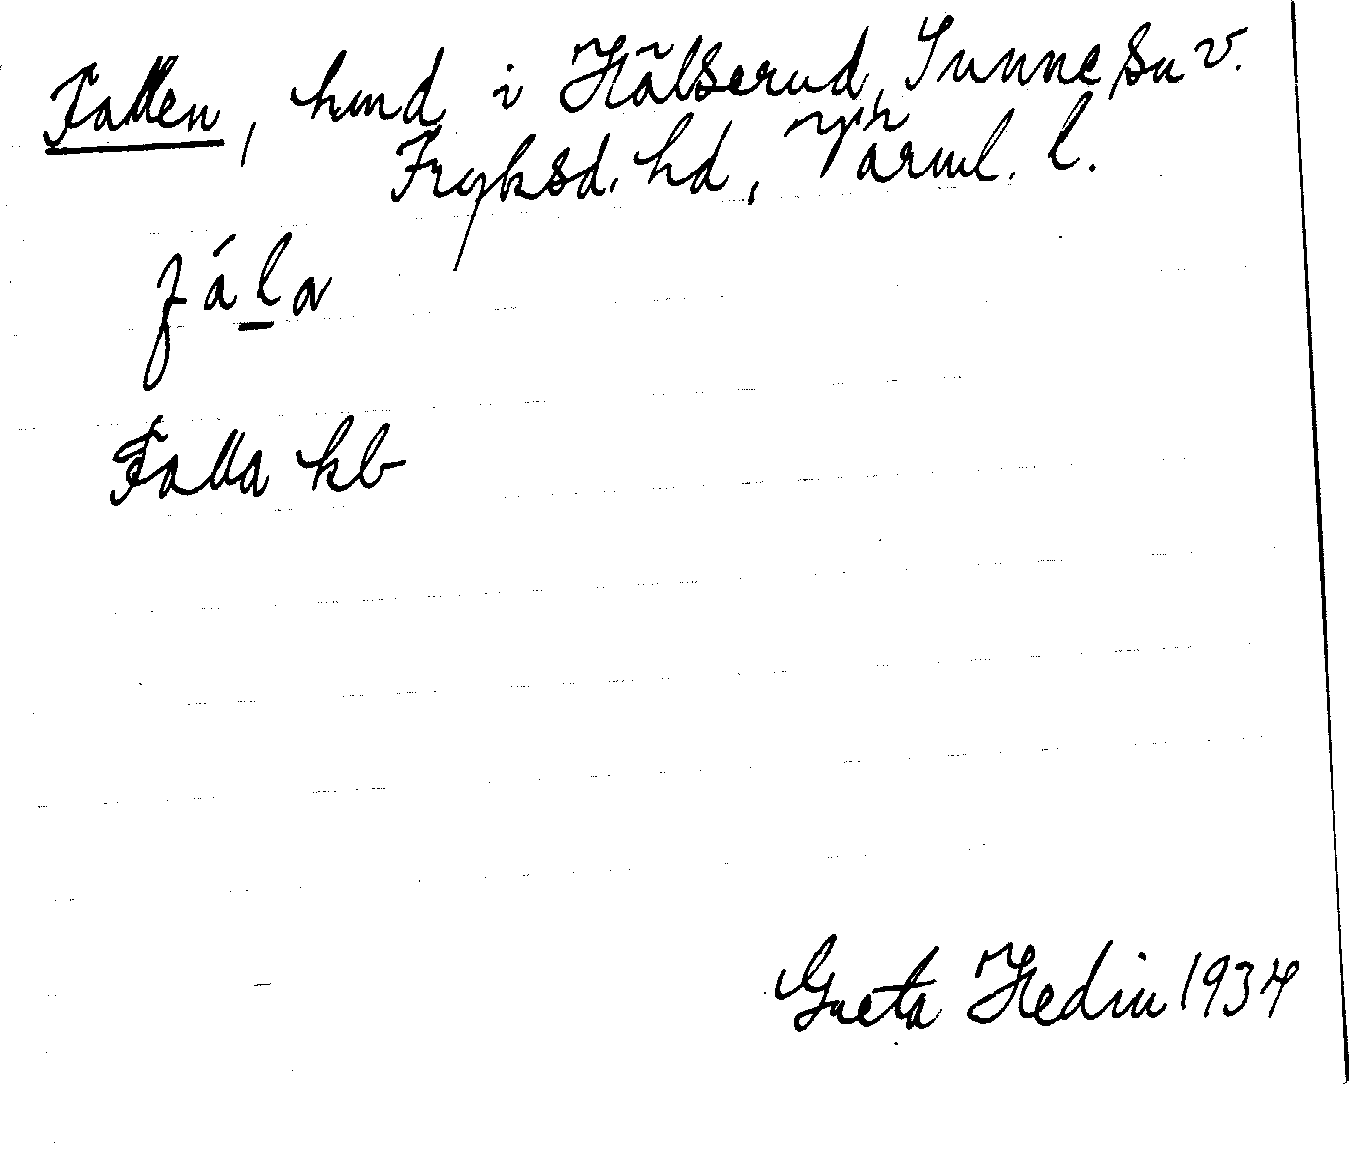 Fallen, hmd i Hälserud, Sunne sn V.
Fryksd. hd, Värml. l.
fá̀la
Falla kb
Greta Hedin 1934